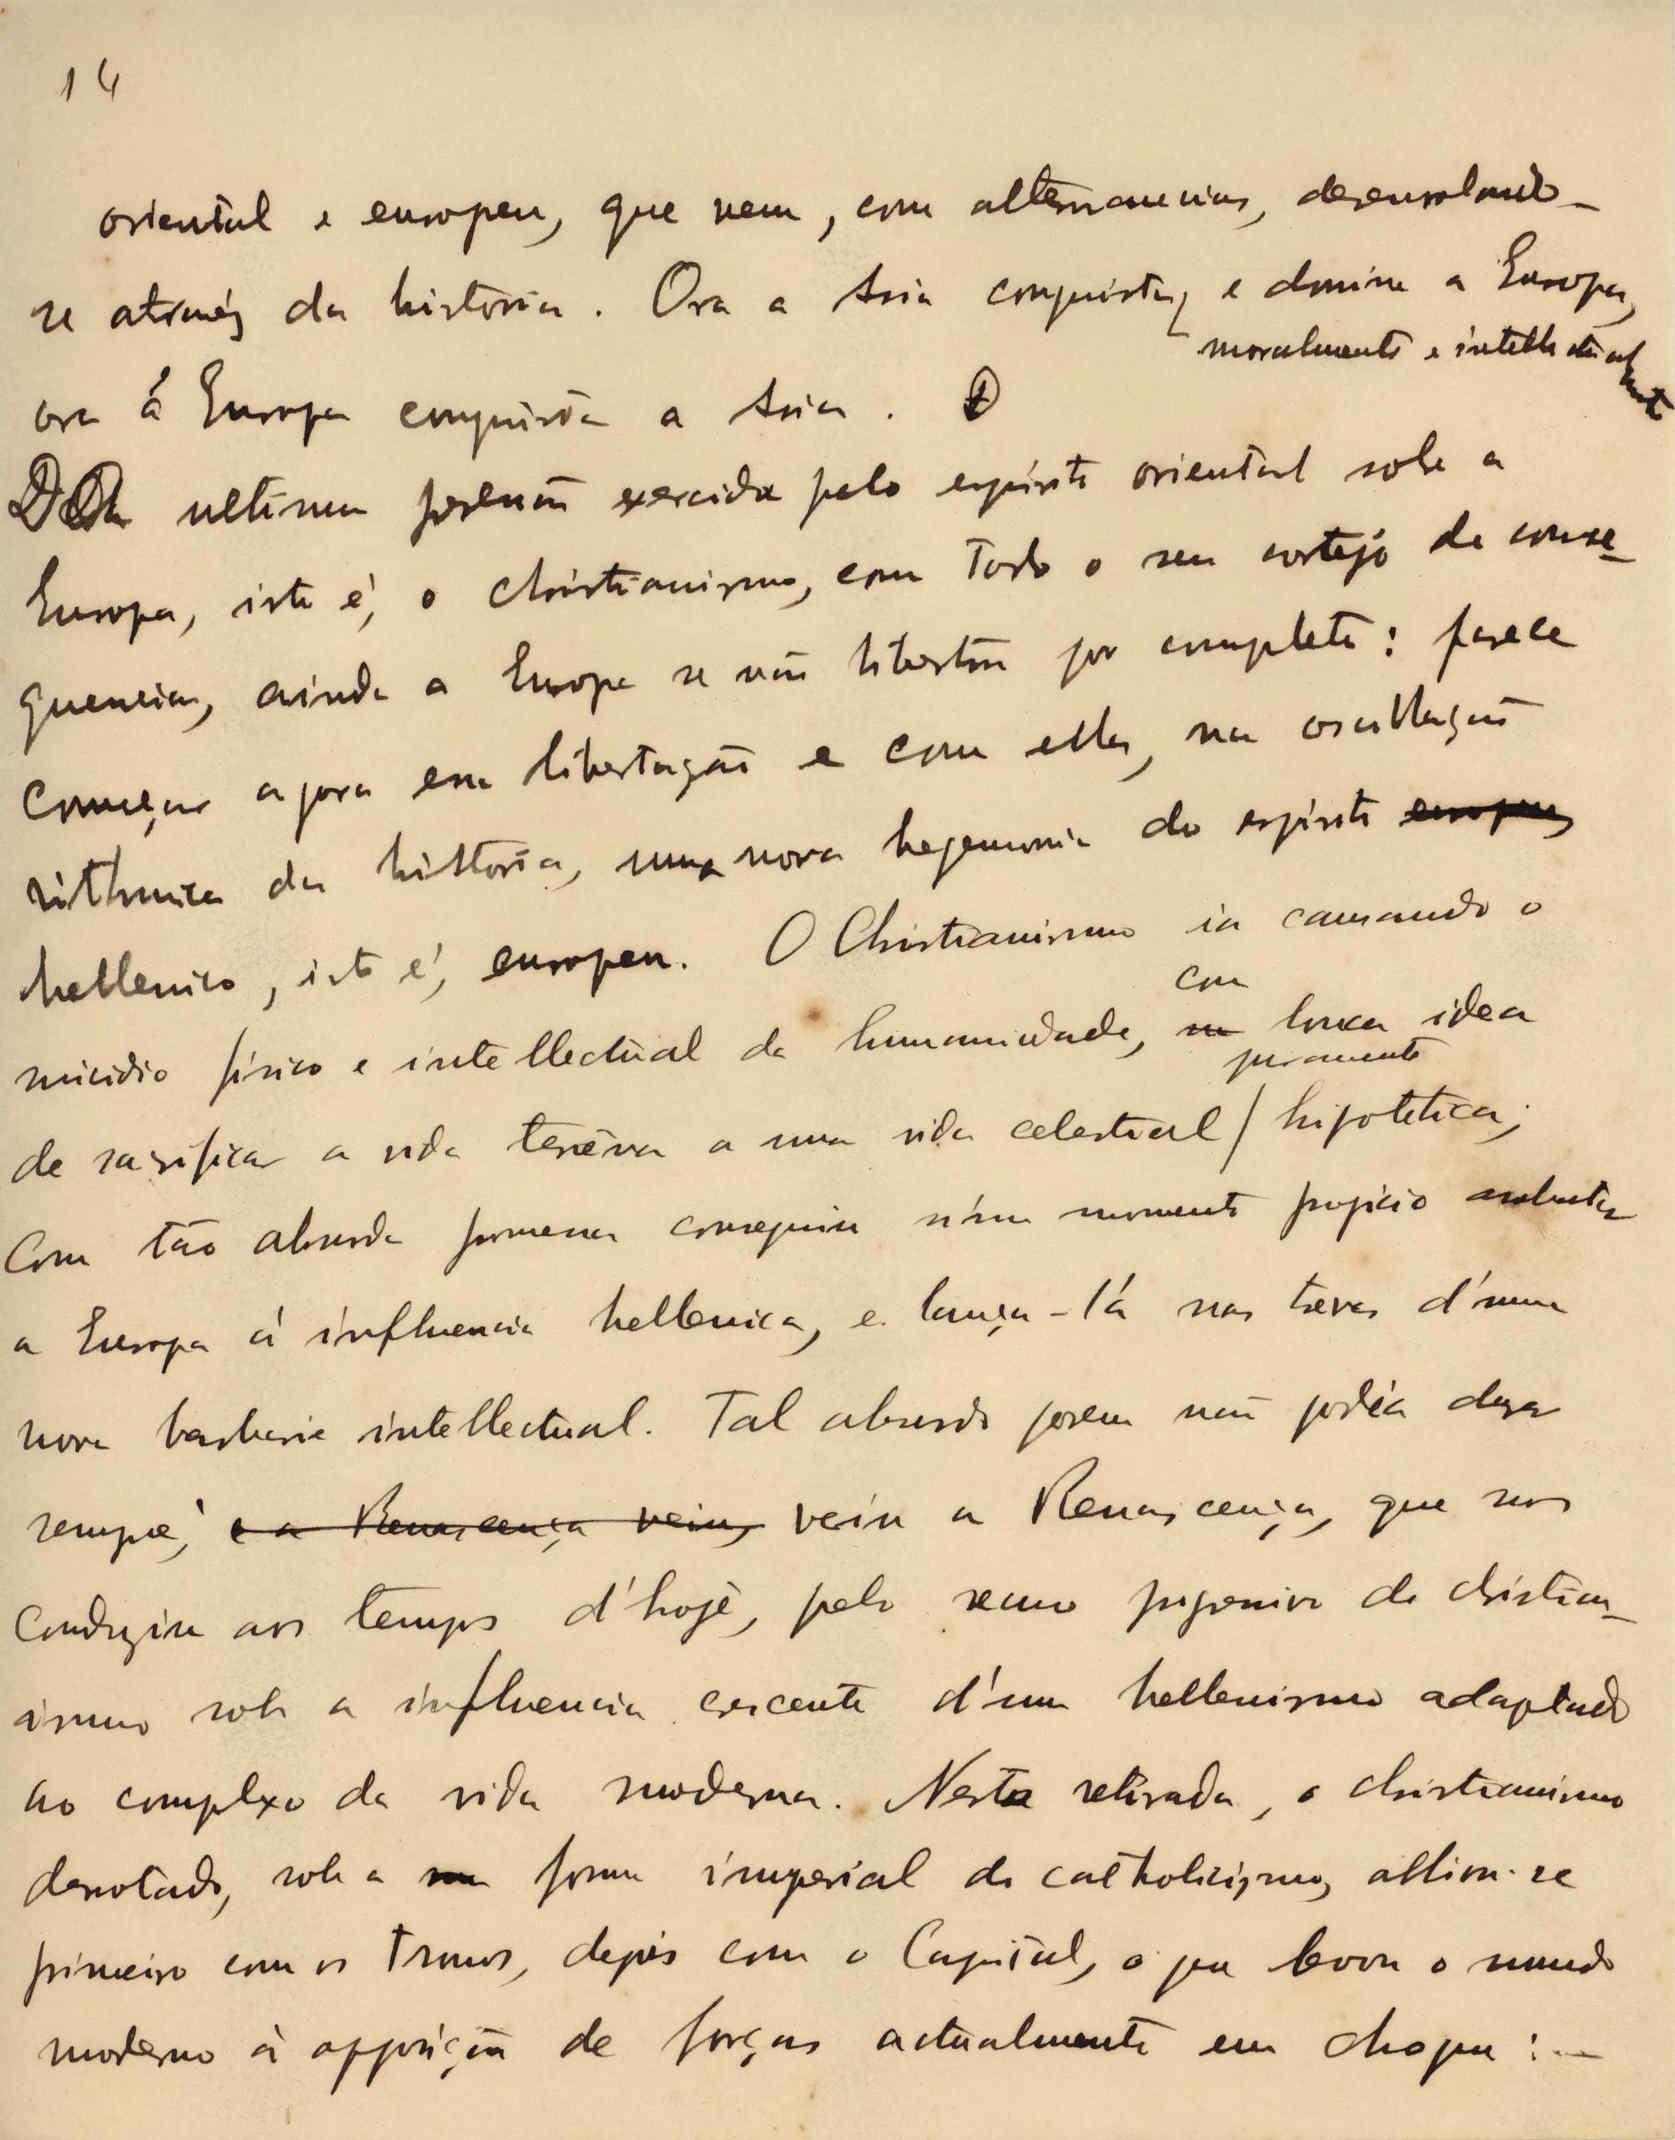 14
oriental e europeu, que vem, com alternancias, desenrolando-
se atravéz da historia. Ora a Asia conquista, e domina a Europa,
moralmente e intellectualmente
ora a Europa conquista a Asia.
Da ultima pressão exercida pelo espirito oriental sobre a
Europa, isto é, o christianismo, com todo o seu cortejo de conse-
quencias, ainda a Europa se não libertou por completo: parece
começar agora essa libertação e com ella, na oscillação
rithmica da historia, uma nova hegemonia do espirito europeu
hellenico, isto é, europeu. O Christianismo ia causando o
com
suicidio fisico e intellectual da humanidade, na louca idea
puramente
de sacrificar a vida terrena a uma vida celestial / hipotetica;
Com tão absurda promessa conseguiu n'um momento propicio
a Europa á influencia hellenica, e lança-lá nas trevas d'uma
nova barbarie intellectual. Tal absurdo porem não podia durar
sempre; e a Renascença veiu, veiu a Renascença, que nos
Conduziu aos tempos d'hoje, pelo recuo progressivo do christian-
ismo sob a influencia crescente d'um hellenismo adaptado
ao complexo da vida moderna. Nesta retirada, o christianismo
derrotado, sob a forma imperial do catholicismo, alliou-se
primeiro com os tronos, depois com o Capital, o que levou o mundo
moderno á opposição de forças actualmente em choque: —